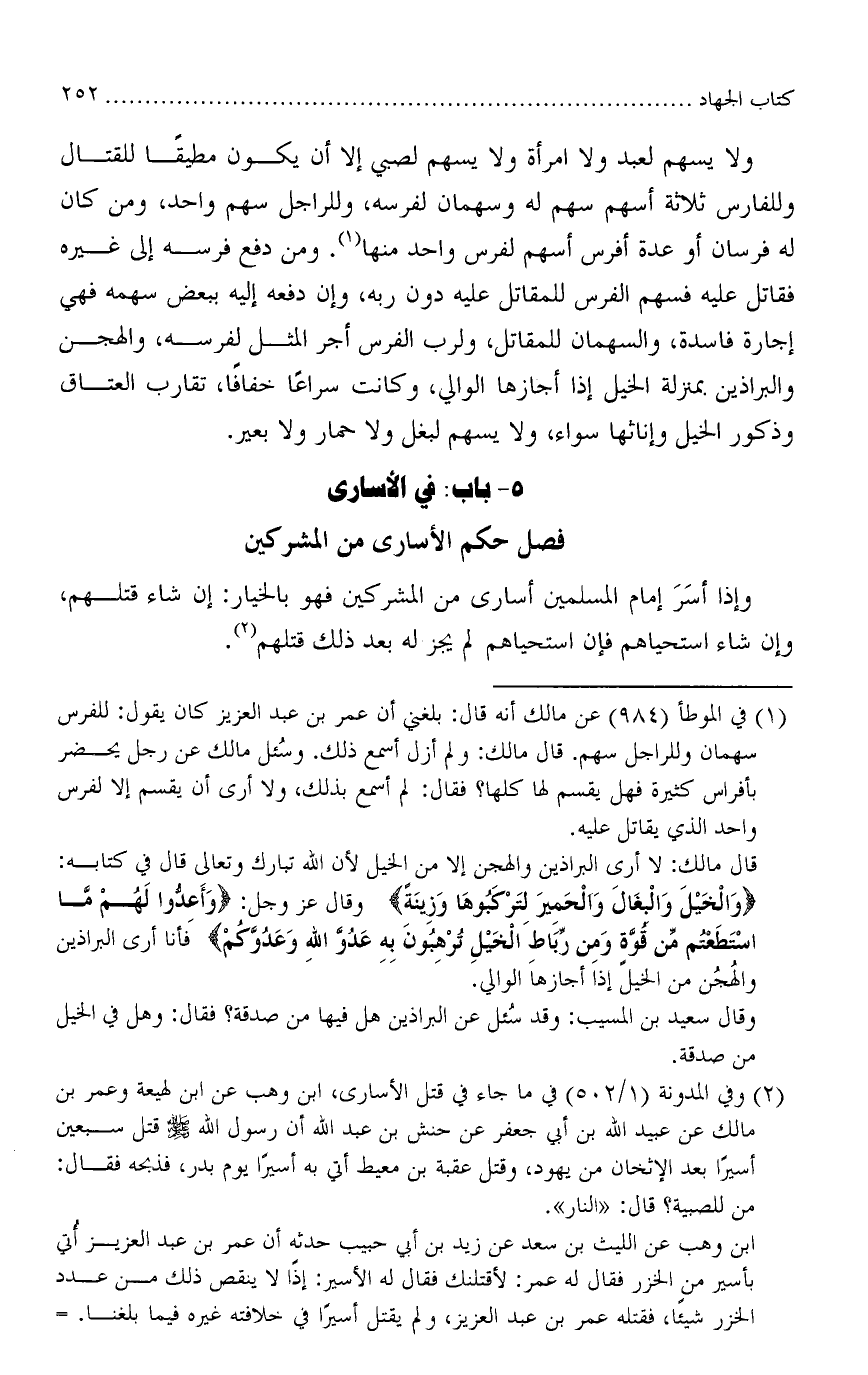 كتاب الجهاد ........................................................................ ٢٥٢
ولا يسهم لعبد ولا امرأة ولا يسهم لصبي إلا أن يكـــون مطيقًـــا للقتـــال
وللفارس ثلاثة أسهم سهم له وسهمان لفرسه، وللراجل سهم واحد، ومن كان
له فرسان أو عدة أفرس أسهم لفرس واحد منها(١). ومن دفع فرســـه إلى غـــيره
فقاتل عليه فسهم الفرس للمقاتل عليه دون ربه، وإن دفعه إليه ببعض سهمه فهي
إجارة فاسدة، والسهمان للمقاتل، ولرب الفرس أجر المثـــل لفرســـه، والهجـــن
والبراذين بمنزلة الخيل إذا أجازها الوالي، وكانت سراعًا خفافًا، تقارب العتـــاق
وذكور الخيل وإناثها سواء، ولا يسهم لبغل ولا حمار ولا بعير.
٥- باب: في الأسارى
فصل حكم الأسارى من المشركين
وإذا أسَرَ إمام المسلمين أسارى من المشركين فهو بالخيار: إن شاء قتلـــهم،
وإن شاء استحياهم فإن استحياهم لم يجز له بعد ذلك قتلهم(٢).
(١) في الموطأ (٩٨٤) عن مالك أنه قال: بلغني أن عمر بن عبد العزيز كان يقول: للفرس
سهمان وللراجل سهم. قال مالك: ولم أزل أسمع ذلك. وسُئل مالك عن رجل يحـــضر
بأفراس كثيرة فهل يقسم لها كلها؟ فقال: لم أسمع بذلك، ولا أرى أن يقسم إلا لفرس
واحد الذي يقاتل عليه.
قال مالك: لا أرى البراذين والهجن إلا من الخيل لأن الله تبارك وتعالى قال في كتابـــه:
﴿وَالْخَيْلَ وَالْبِغَالَ وَالْحَمِيرَ لِتَرْكَبُوهَا وَزِينَةً﴾ وقال عز وجل: ﴿وَأَعِدُّوا لَهُـــمْ مَّـــا
اسْتَطَعْتُم مِّن قُوَّةٍ وَمِن رِّبَاطِ الْخَيْلِ تُرْهِبُونَ بِهِ عَدُوَّ اللهِ وَعَدُوَّكُمْ﴾ فأنا أرى البراذين
والهُجُن من الخيل إذا أجازها الوالي.
وقال سعيد بن المسيب: وقد سُئل عن البراذين هل فيها من صدقة؟ فقال: وهل في الخيل
من صدقة.
(٢) وفي المدونة (٥٠٢/١) في ما جاء في قتل الأسارى، ابن وهب عن ابن لهيعة وعمر بن
مالك عن عبيد الله بن أبي جعفر عن حنش بن عبد الله أن رسول الله ﷺ قتل ســـبعين
أسيرًا بعد الإثخان من يهود، وقتل عقبة بن معيط أتي به أسيرًا يوم بدر، فذبحه فقـــال:
من للصبية؟ قال: «النار».
ابن وهب عن الليث بن سعد عن زيد بن أبي حبيب حدثه أن عمر بن عبد العزيـــز أُتي
بأسير من الخزر فقال له عمر: لأقتلنك فقال له الأسير: إذًا لا ينقص ذلك مـــن عـــدد
الخزر شيئًا، فقتله عمر بن عبد العزيز، ولم يقتل أسيرًا في خلافته غيره فيما بلغنـــا. =